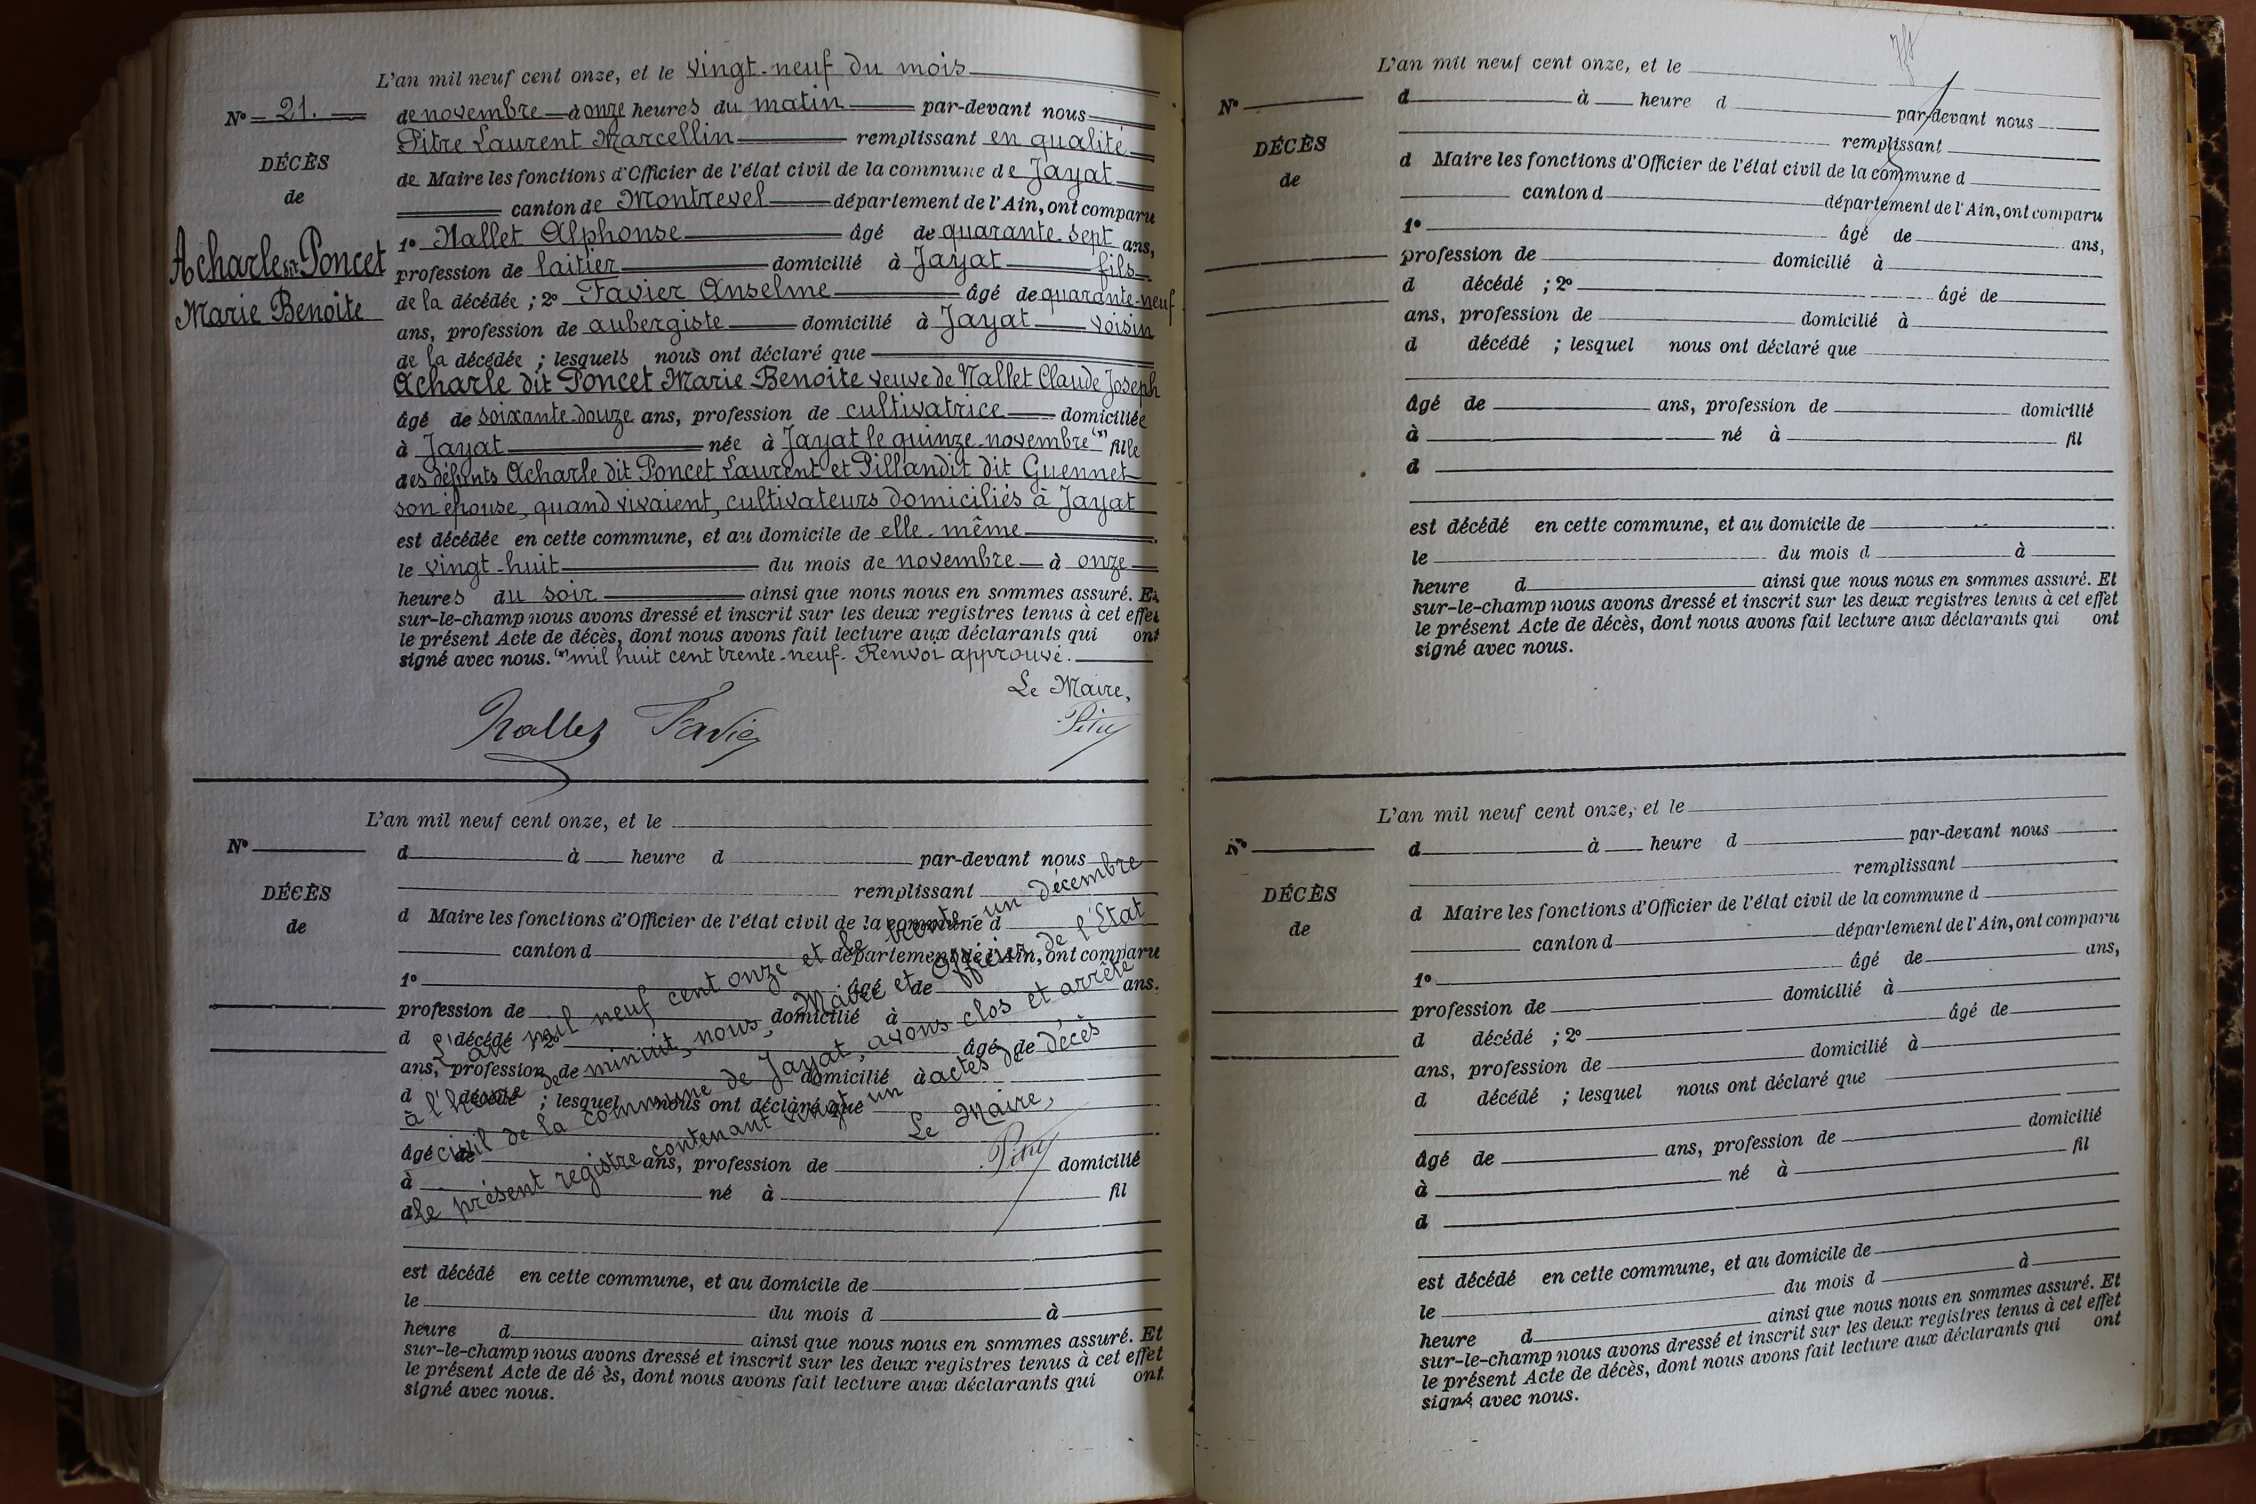 L'an mil neuf cent onze, et le vingt-neuf du mois
N° 21.
de novembre à onze heures du matin par-devant nous
Pitre Laurent Marcellin remplissant en qualité
DÉCÈS
de Maire les fonctions d'Officier de l'état civil de la commune de Jayat
de
canton de Montrevel département de l'Ain, ont comparu
Acharle dit Poncet
Marie Benoite
1° Nallet Alphonse âgé de quarante-sept ans,
profession de laitier domicilié à Jayat fils
de la décédée ; 2° Favier Anselme âgé de quarante-neuf
ans, profession de aubergiste domicilié à Jayat voisin
de la décédée ; lesquels nous ont déclaré que
Acharle dit Poncet Marie Benoite veuve de Nallet Claude Joseph
âgé de soixante-douze ans, profession de cultivatrice domiciliée
à Jayat née à Jayat le quinze novembre (x) fille
des défunts Acharle dit Poncet Laurent et Pillandit dit Guennet
son épouse, quand vivaient, cultivateurs domiciliés à Jayat
est décédée en cette commune, et au domicile de elle-même
le vingt-huit du mois de novembre à onze
heures du soir ainsi que nous nous en sommes assuré. Et
sur-le-champ nous avons dressé et inscrit sur les deux registres tenus à cet effet
le présent Acte de décès, dont nous avons fait lecture aux déclarants qui ont
signé avec nous. (x) mil huit cent trente-neuf. Renvoi approuvé.
Le Maire,
Nallet Favier Pitre
L'an mil neuf cent onze, et le
N°
d à heure d par-devant nous
remplissant
DÉCÈS
d Maire les fonctions d'Officier de l'état civil de la commune d
de
canton d département de l'Ain, ont comparu
1° âgé de ans.
profession de domicilié à
d décédé ; 2° âgé de
ans, profession de domicilié à
d décédé ; lesquel nous ont déclaré que
âgé de ans, profession de domicilié
à né à fil
d
est décédé en cette commune, et au domicile de
le du mois d à
heure d ainsi que nous nous en sommes assuré. Et
sur-le-champ nous avons dressé et inscrit sur les deux registres tenus à cet effet
le présent Acte de décès, dont nous avons fait lecture aux déclarants qui ont
signé avec nous.
L'an mil neuf cent onze et le trente-un décembre
à l'heure de minuit, nous, Maire et Officier de l'Etat
civil de la commune de Jayat, avons clos et arrêté
le présent registre contenant vingt un actes de décès
Le Maire,
Pitre
L'an mil neuf cent onze, et le
N°
d à heure d par-devant nous
remplissant
DÉCÈS
d Maire les fonctions d'Officier de l'état civil de la commune d
de
canton d département de l'Ain, ont comparu
1° âgé de ans,
profession de domicilié à
d décédé ; 2° âgé de
ans, profession de domicilié à
d décédé ; lesquel nous ont déclaré que
âgé de ans, profession de domicilié
à né à fil
d
est décédé en cette commune, et au domicile de
le du mois d à
heure d ainsi que nous nous en sommes assuré. Et
sur-le-champ nous avons dressé et inscrit sur les deux registres tenus à cet effet
le présent Acte de décès, dont nous avons fait lecture aux déclarants qui ont
signé avec nous.
L'an mil neuf cent onze, et le
N°
d à heure d par-devant nous
remplissant
DÉCÈS
d Maire les fonctions d'Officier de l'état civil de la commune d
de
canton d département de l'Ain, ont comparu
1° âgé de ans,
profession de domicilié à
d décédé ; 2° âgé de
ans, profession de domicilié à
d décédé ; lesquel nous ont déclaré que
âgé de ans, profession de domicilié
à né à fil
d
est décédé en cette commune, et au domicile de
le du mois d à
heure d ainsi que nous nous en sommes assuré. Et
sur-le-champ nous avons dressé et inscrit sur les deux registres tenus à cet effet
le présent Acte de décès, dont nous avons fait lecture aux déclarants qui ont
signé avec nous.